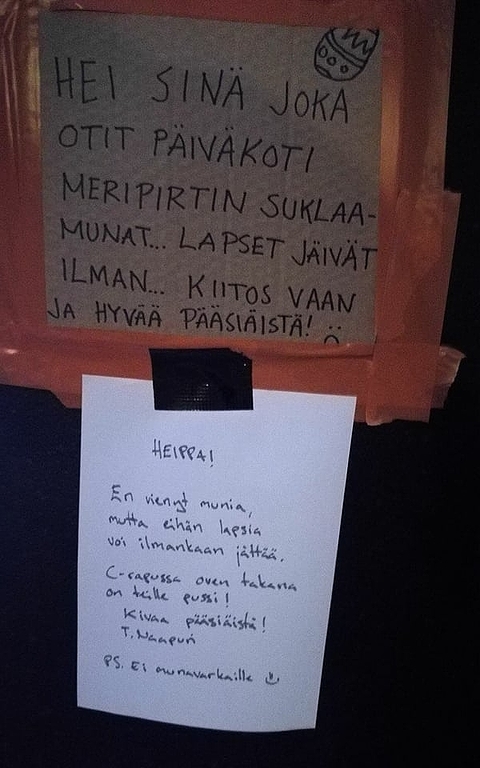 HEI SINÄ JOKA
OTIT PÄIVÄKOTI
MERIPIRTIN SUKLAA-
MUNAT... LAPSET JÄIVÄT
ILMAN... KIITOS VAAN
JA HYVÄÄ PÄÄSIÄISTÄ! :(
HEIPPA!
En vienyt munia,
mutta eihän lapsia
voi ilmankaan jättää.
C-rapussa oven takana
on teille pussi!
Kivaa pääsiäistä!
T. Naapuri
PS. Ei munavarkaille :)